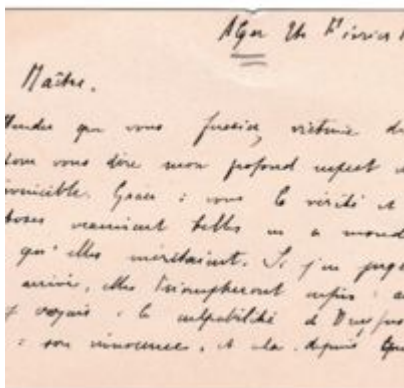 Alger 26 Février
Maître,
que vous fussiez, victime
vous dire mon profond respect
invincible. Grâce à vous la vérité et
choses vraiment belles en ce
qu'elles méritaient. Si j'en juge
arrivé, elles triompheront enfin :
voyais à la culpabilité de Dreyfus
à son innocence, et cela depuis